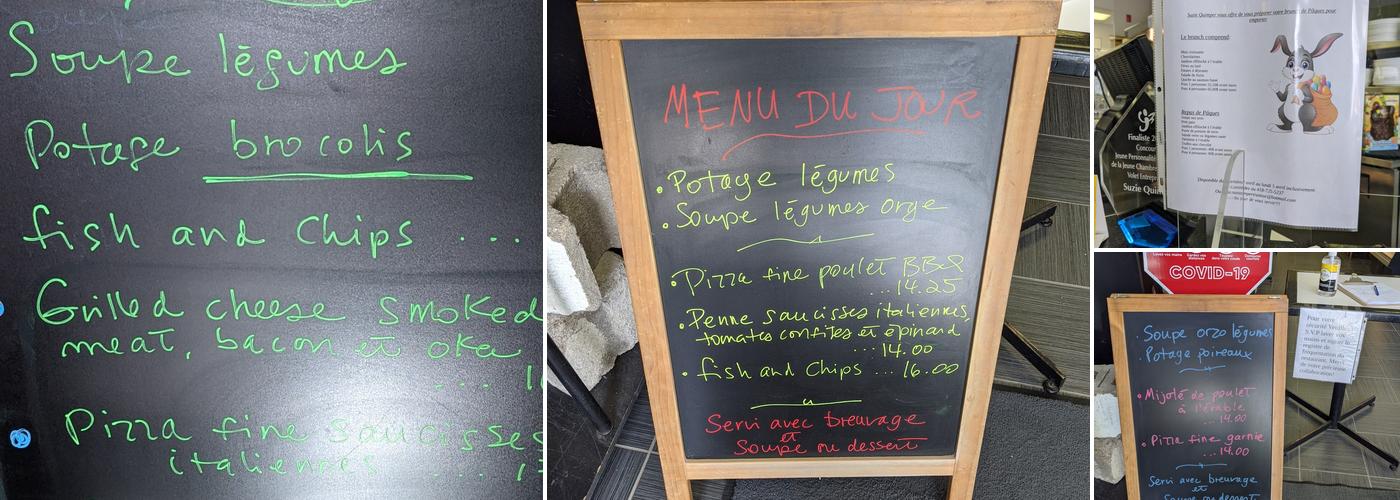 Soupe légumes
Potage brocolis
fish and Chips ...
Grilled cheese smoked
meat, bacon et oka
...
Pizza fine saucisses
italiennes ...
MENU DU JOUR
• Potage légumes
• Soupe légumes orge
• Pizza fine poulet BBQ
... 14.25
• Penne saucisses italiennes,
tomates confites et épinard
... 14.00
• fish and Chips ... 16.00
Servi avec breuvage
et
Soupe ou dessert
Suzie Quimper vous offre de vous préparer votre brunch de Pâques pour
emporter
Le brunch comprend:
Repas de Pâques
Finaliste
Concou
Jeune Personnalité
de la Jeune Chambre
Volet Entrepr
Suzie Quim
COVID-19
• Soupe orzo légumes
• Potage poireaux
• Mijoté de poulet
à l'érable
... 14.00
• Pizza fine garnie
... 14.00
Servi avec breuvage
et
Soupe ou dessert
Pour votre
sécurité Veuillez
S.V.P laver vos
mains et signer le
registre de
fréquentation du
restaurant. Merci
de votre précieuse
collaboration!